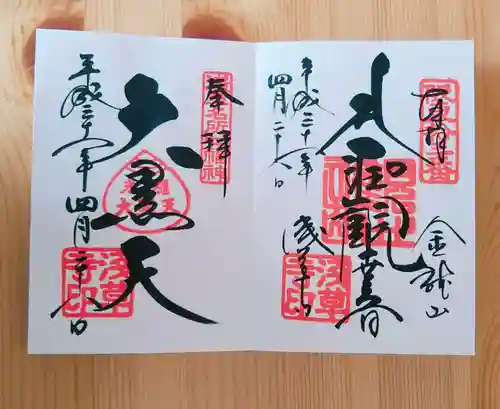 奉拝
金龍山
聖観世音
浅草寺
浅草寺印
平成三十年
四月二十八日
奉拝
大黒天
平成三十年四月二十八日
浅草寺印